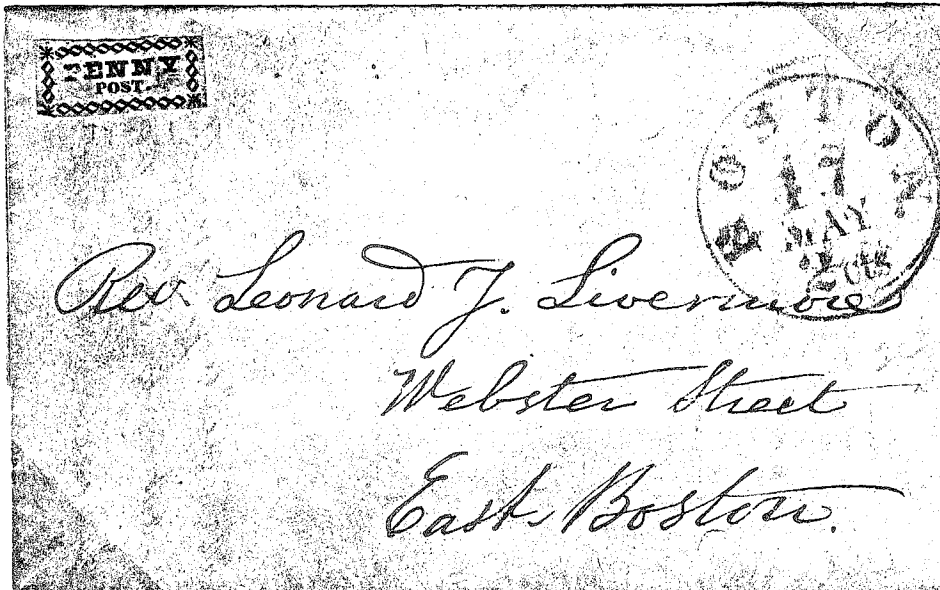 PENNY
POST.
BOSTON
17
MAY
2 cts
Rev. Leonard J. Livermore
Webster Street
East Boston.